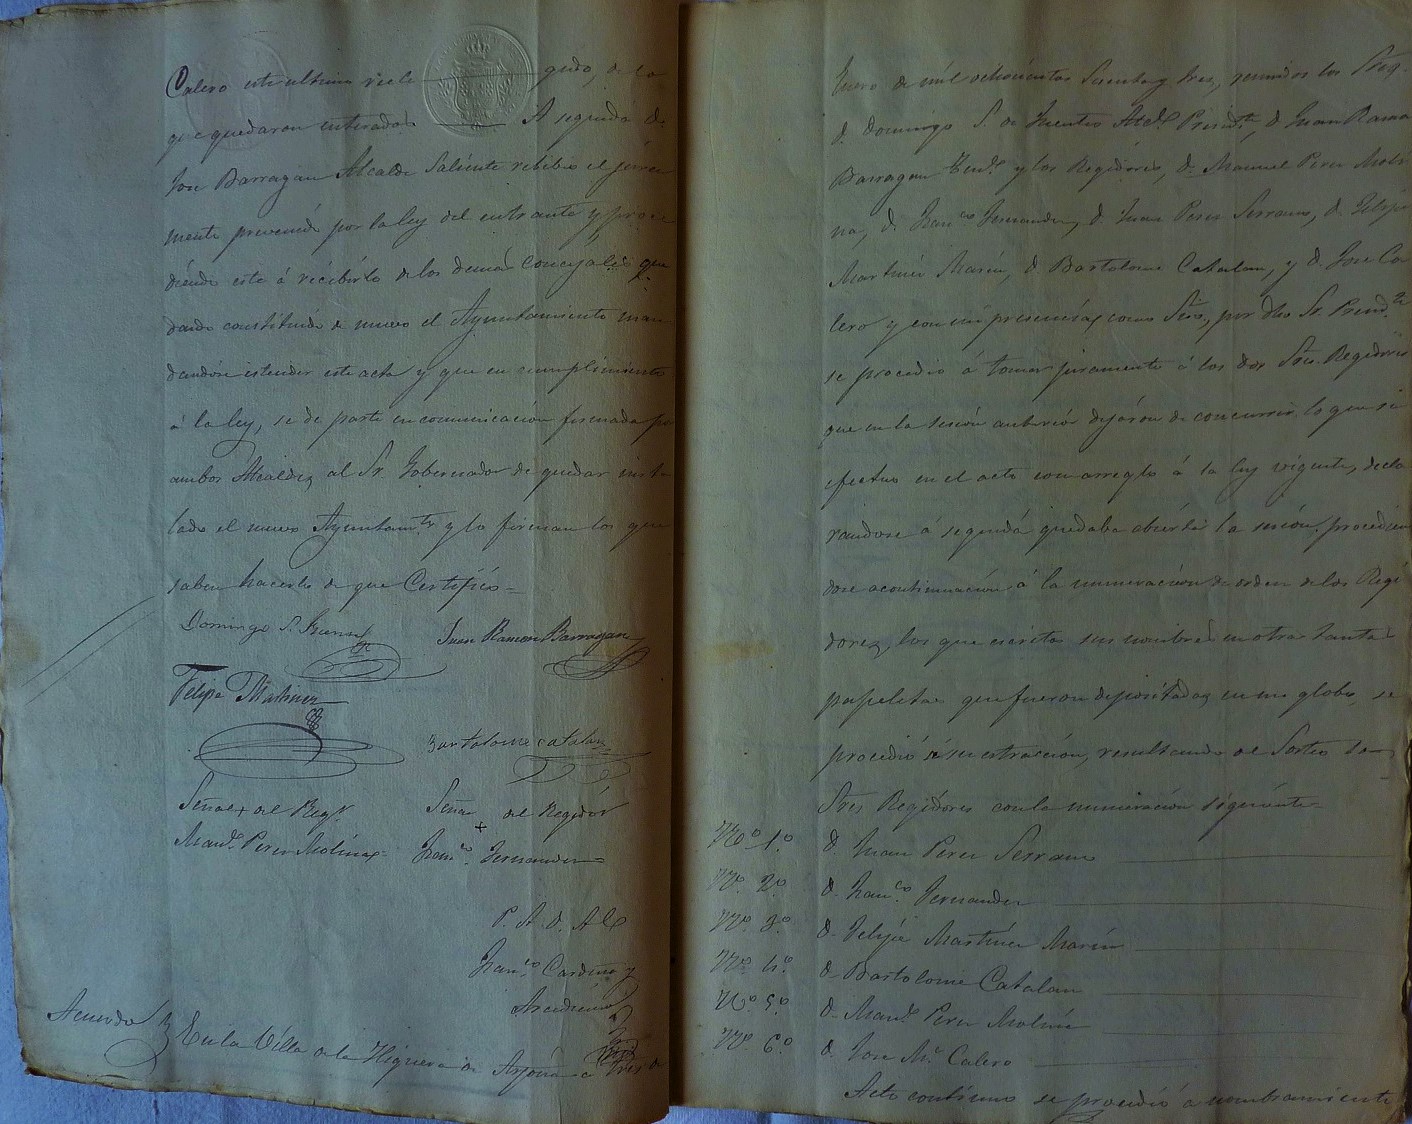 Calero este ultimo reele gido, de lo
que quedaron enterados A seguida D.
Jose Barragan Alcalde Saliente recibió el juram
mento prevenido por la ley del entrante y proce
diendo este á recibirlo de los demas concejales que
dando constituido de nuevo el Ayuntamiento man
dandose estender este acta y que en cumplimiento
á la ley, se de parte en comunicación firmada por
ambos Alcaldes al Sr. Gobernador de quedar insta
lado el nuevo Ayuntamto y lo firman los que
saben hacerlo de que Certifico=
Domingo S. Juan Ramon Barragan
Felipe Martinez
Bartolome Catalan
Señal + del Regr. Señal + del Regidor
Manl. Perez Molina= Franco. Fernandez=
P. A. D. A
Franco. Cardeña y
Acuerdo En la Villa de la Higuera de Arjona a tres de
Enero de mil ochocientos sesenta y tres, reunidos los Sres.
D. Domingo S. de Alcde Presidte, D. Juan Ramon
Barragan Tente y los Regidores, D. Manuel Perez Moli
na, D. Franco Fernandez, D. Juan Perez Serrano, D. Felipe
Martinez Marin, D. Bartolome Catalan, y D. Jose Ca
lero y con mi presencia, como Srio, por dho Sr. Presidte
se procedió á tomar juramento á los dos Sres. Regidores
que en la sesión anterior dejaron de concurrir, lo que se
efectuo en el acto con arreglo á la ley vigente, decla
randose á seguida quedaba abierta la sesión, procedien
dose acontinuación á la numeración de orden de los Regi
dores, los que escritos sus nombres en otras tantas
papeletas que fueron depositadas en un globo, se
procedió á su estracción, resultando del Sorteo los
Sres Regidores con la numeración siguiente=
No. 1.o D. Juan Perez Serrano
No. 2.o D. Franco. Fernandez
No. 3.o D. Felipe Martinez Marin
No. 4.o D. Bartolome Catalan
No. 5.o D. Manl. Perez Molina
No. 6.o D. Jose Ma. Calero
Acto continuo se procedió á nombramiento